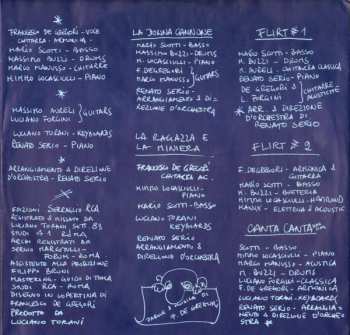 FRANCESCO DE GREGORI - VOCE
CHITARRA - ARMONICA -
MARIO SCOTTI - BASSO
MASSIMO BUZZI - DRUMS
MARCO MANUSSO - CHITARRE
MIMMO LOCASCIULLI - PIANO
MASSIMO AURELI
LUCIANO TORANI
GUITARS
LUCIANO TORANI - KEYBOARDS
RENATO SERIO - PIANO
ARRANGIAMENTO & DIREZIONE
D'ORCHESTRA - RENATO SERIO
EDIZIONI SERRAGLIO RCA
REGISTRATO & MIXATO DA
LUCIANO TORANI SET. 83
STUDI 1 ROMA
ARCHI REGISTRATI DA
SERGIO MARCOTULLI -
FORUM - ROMA
ASSISTENTE ALLA POSIZIONE
FILIPPO BRUNI
MASTERING -
STUDI RCA - ROMA
DISEGNO IN COPERTINA DI
FRANCESCO DE GREGORI
PRODOTTO DA
LUCIANO TORANI
LA DONNA CANNONE
MARIO SCOTTI - BASSO
MASSIMO BUZZI - DRUMS
M. LOCASCIULLI - PIANO
F. DE GREGORI
MARCO MANUSSO
GUITARS
RENATO SERIO -
ARRANGIAMENTI & DI-
REZIONE D'ORCHESTRA
LA RAGAZZA E
LA MINIERA
FRANCESCO DE GREGORI
CHITARRA AC.
MIMMO LOCASCIULLI -
PIANO
MARIO SCOTTI - BASSO
LUCIANO TORANI
KEYBOARDS
RENATO SERIO
ARRANGIAMENTI &
DIREZIONE D'ORCHESTRA
FLIRT #1
MARIO SCOTTI - BASSO
M. BUZZI - DRUMS
M. AURELI - CHITARRA CLASSICA
RENATO SERIO - PIANO
F. DE GREGORI
L. TORANI
CHITARRE
ACUSTICHE
ARR. & DIREZIONE
D'ORCHESTRA DI
RENATO SERIO
FLIRT #2
F. DE GREGORI - ARMONICA &
CHITARRA
MARIO SCOTTI - BASSO
M. BUZZI - BATTERIA
MIMMO LOCASCIULLI - HAMMOND
MANUX - ELETTRICA & ACUSTIC.
CANTA CANTA
SCOTTI - BASSO
MIMMO LOCASCIULLI - PIANO
MARCO MANUSSO - ACUSTICA
M. BUZZI - DRUMS
LUCIANO TORANI - CLASSICA
F. DE GREGORI - ARMONICA
LUCIANO TORANI - KEYBOARDS
RENATO SERIO - ARRANGIA-
MENTO & DIREZIONE D'ORCHE-
STRA
PAROLE & MUSICA DI
F. DE GREGORI